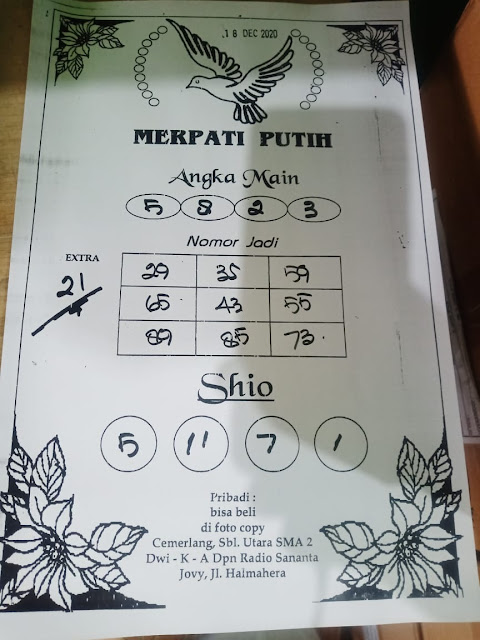 18 DEC 2020
MERPATI PUTIH
Angka Main
5 8 2 3
Nomor Jadi
EXTRA
21
29 35 59
65 43 55
89 85 73
Shio
5 11 7 1
Pribadi :
bisa beli
di foto copy
Cemerlang, Sbl. Utara SMA 2
Dwi - K - A Dpn Radio Sananta
Jovy, Jl. Halmahera